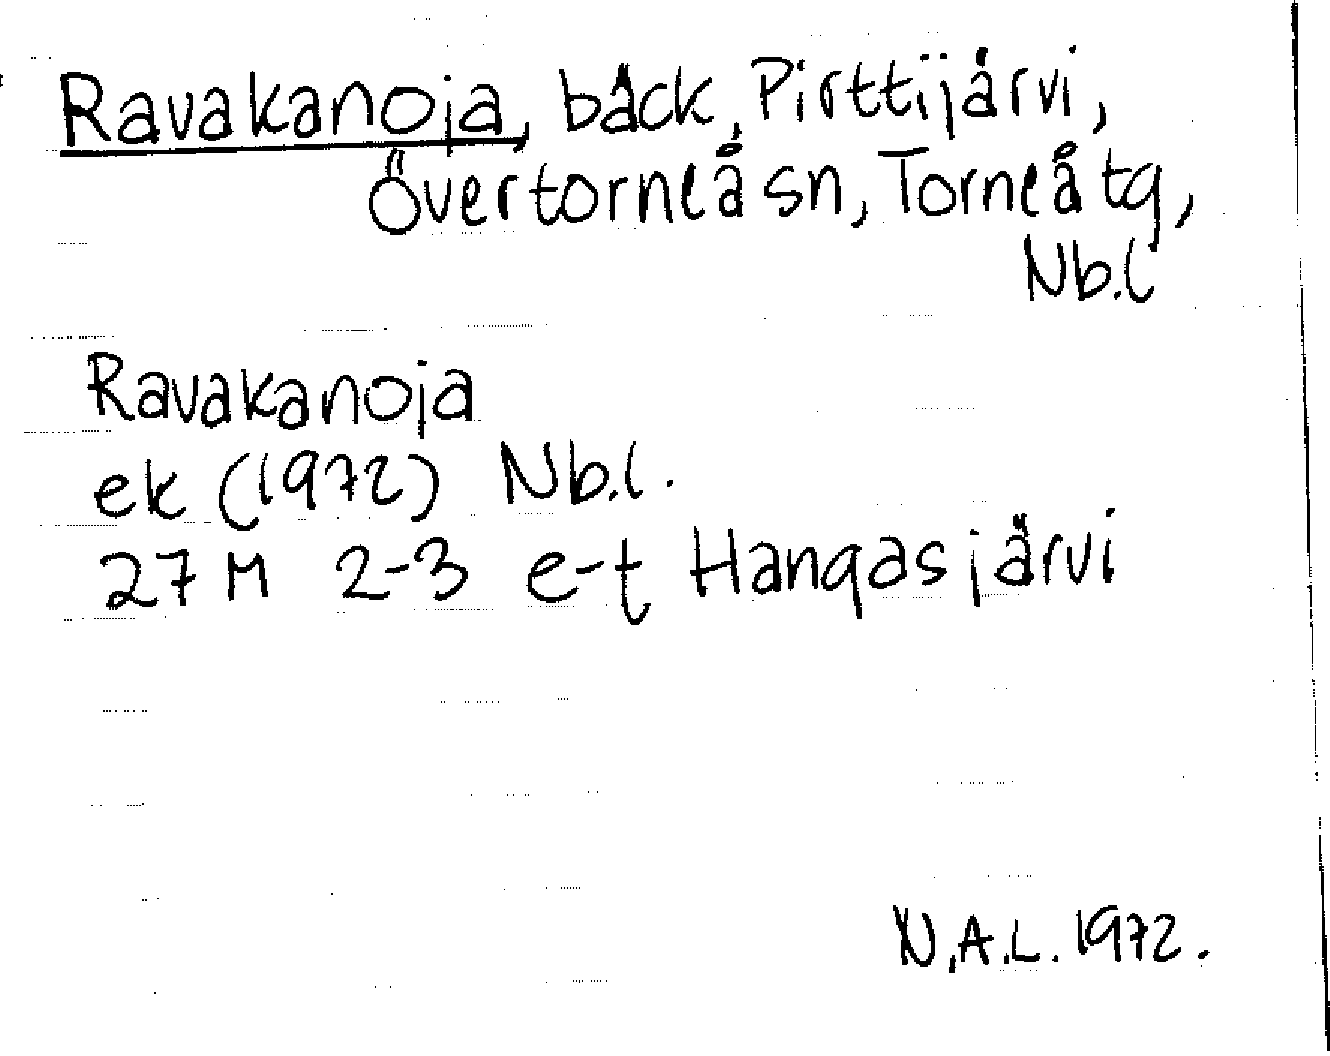 Ravakanoja, bäck, Pirttijärvi,
Övertorneå sn, Torneå tg,
Nb.l
Ravakanoja
ek (1972) Nb.l.
27 M 2-3 e-t Hangasjärvi
N.A.L. 1972.